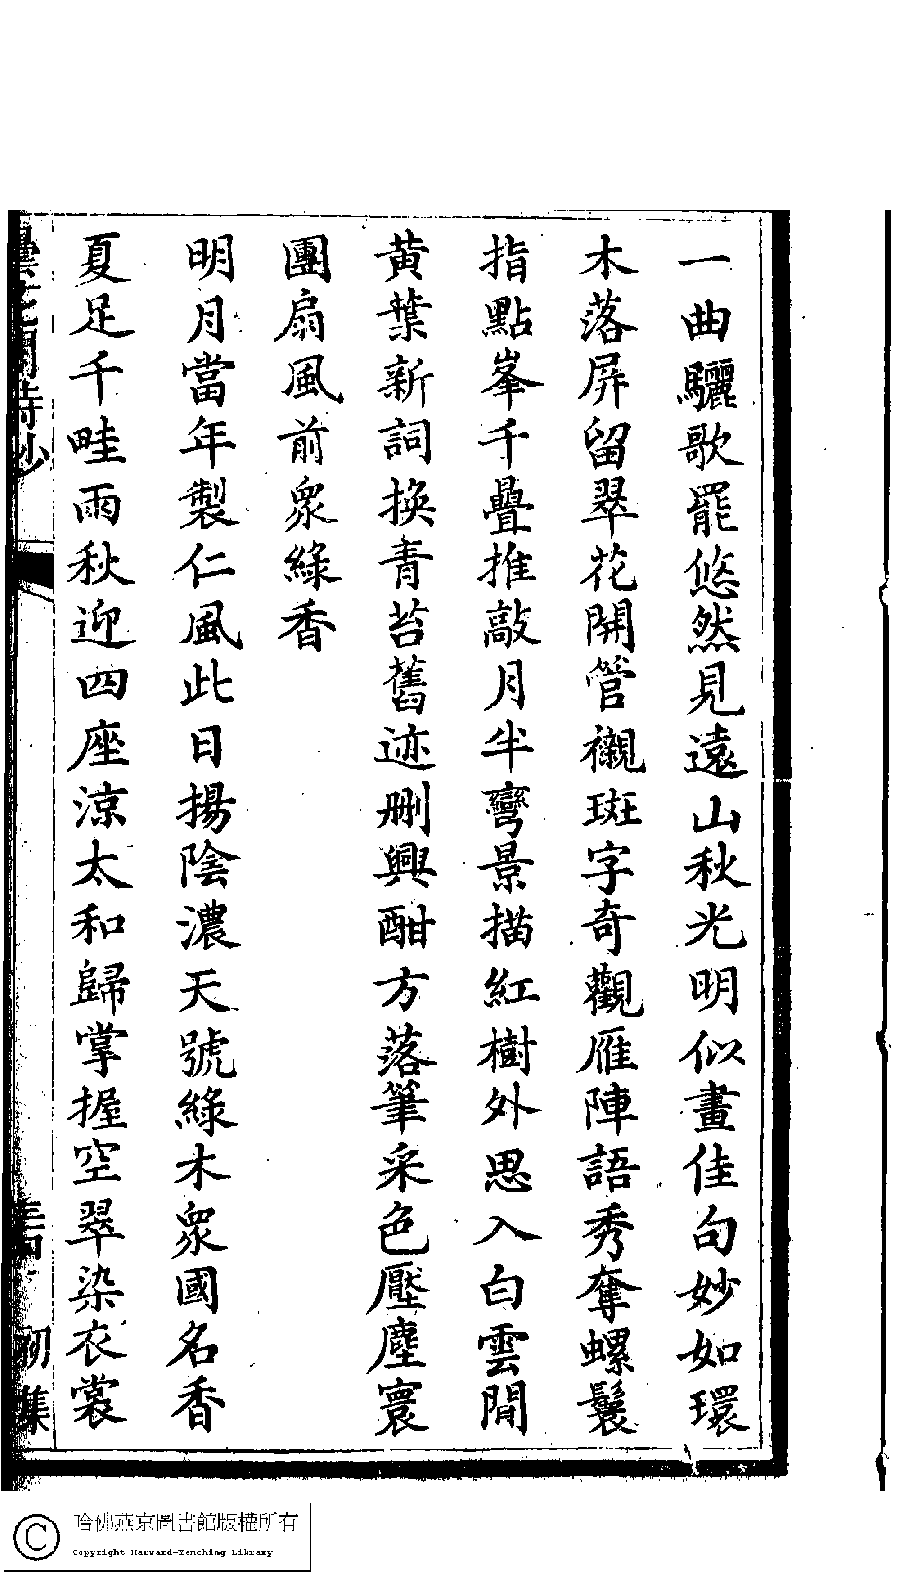 一曲驪歌罷悠然見遠山秋光明似畫佳句妙如環
木落屏留翠花開管襯斑字奇觀雁陣語秀奪螺鬟
指點峯千疊推敲月半彎景描紅樹外思入白雲間
黃葉新詞換青苔舊迹刪興酣方落筆采色壓塵寰
團扇風前衆綠香
明月當年製仁風此日揚陰濃天號綠木衆國名香
夏足千畦雨秋迎四座涼太和歸掌握空翠染衣裳
曇花閣詩鈔
初集
哈佛燕京圖書館版權所有
Copyright Harvard-Yenching Library